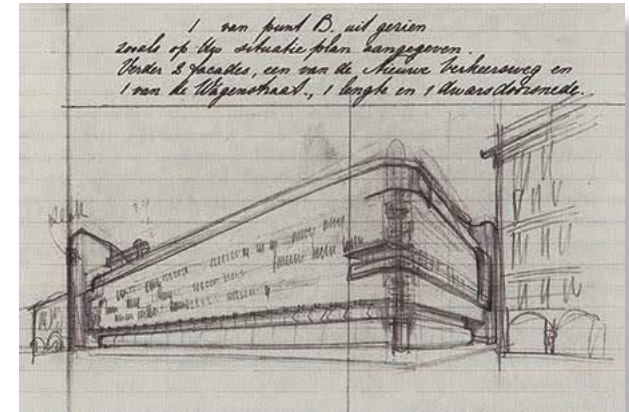 1 van punt B. uit gezien
zooals op Uw situatie plan aangegeven.
Verder 2 facades, een van de Nieuwe Verkeersweg en
1 van de Wagenstraat., 1 lengte en 1 dwarsdoorsnede.